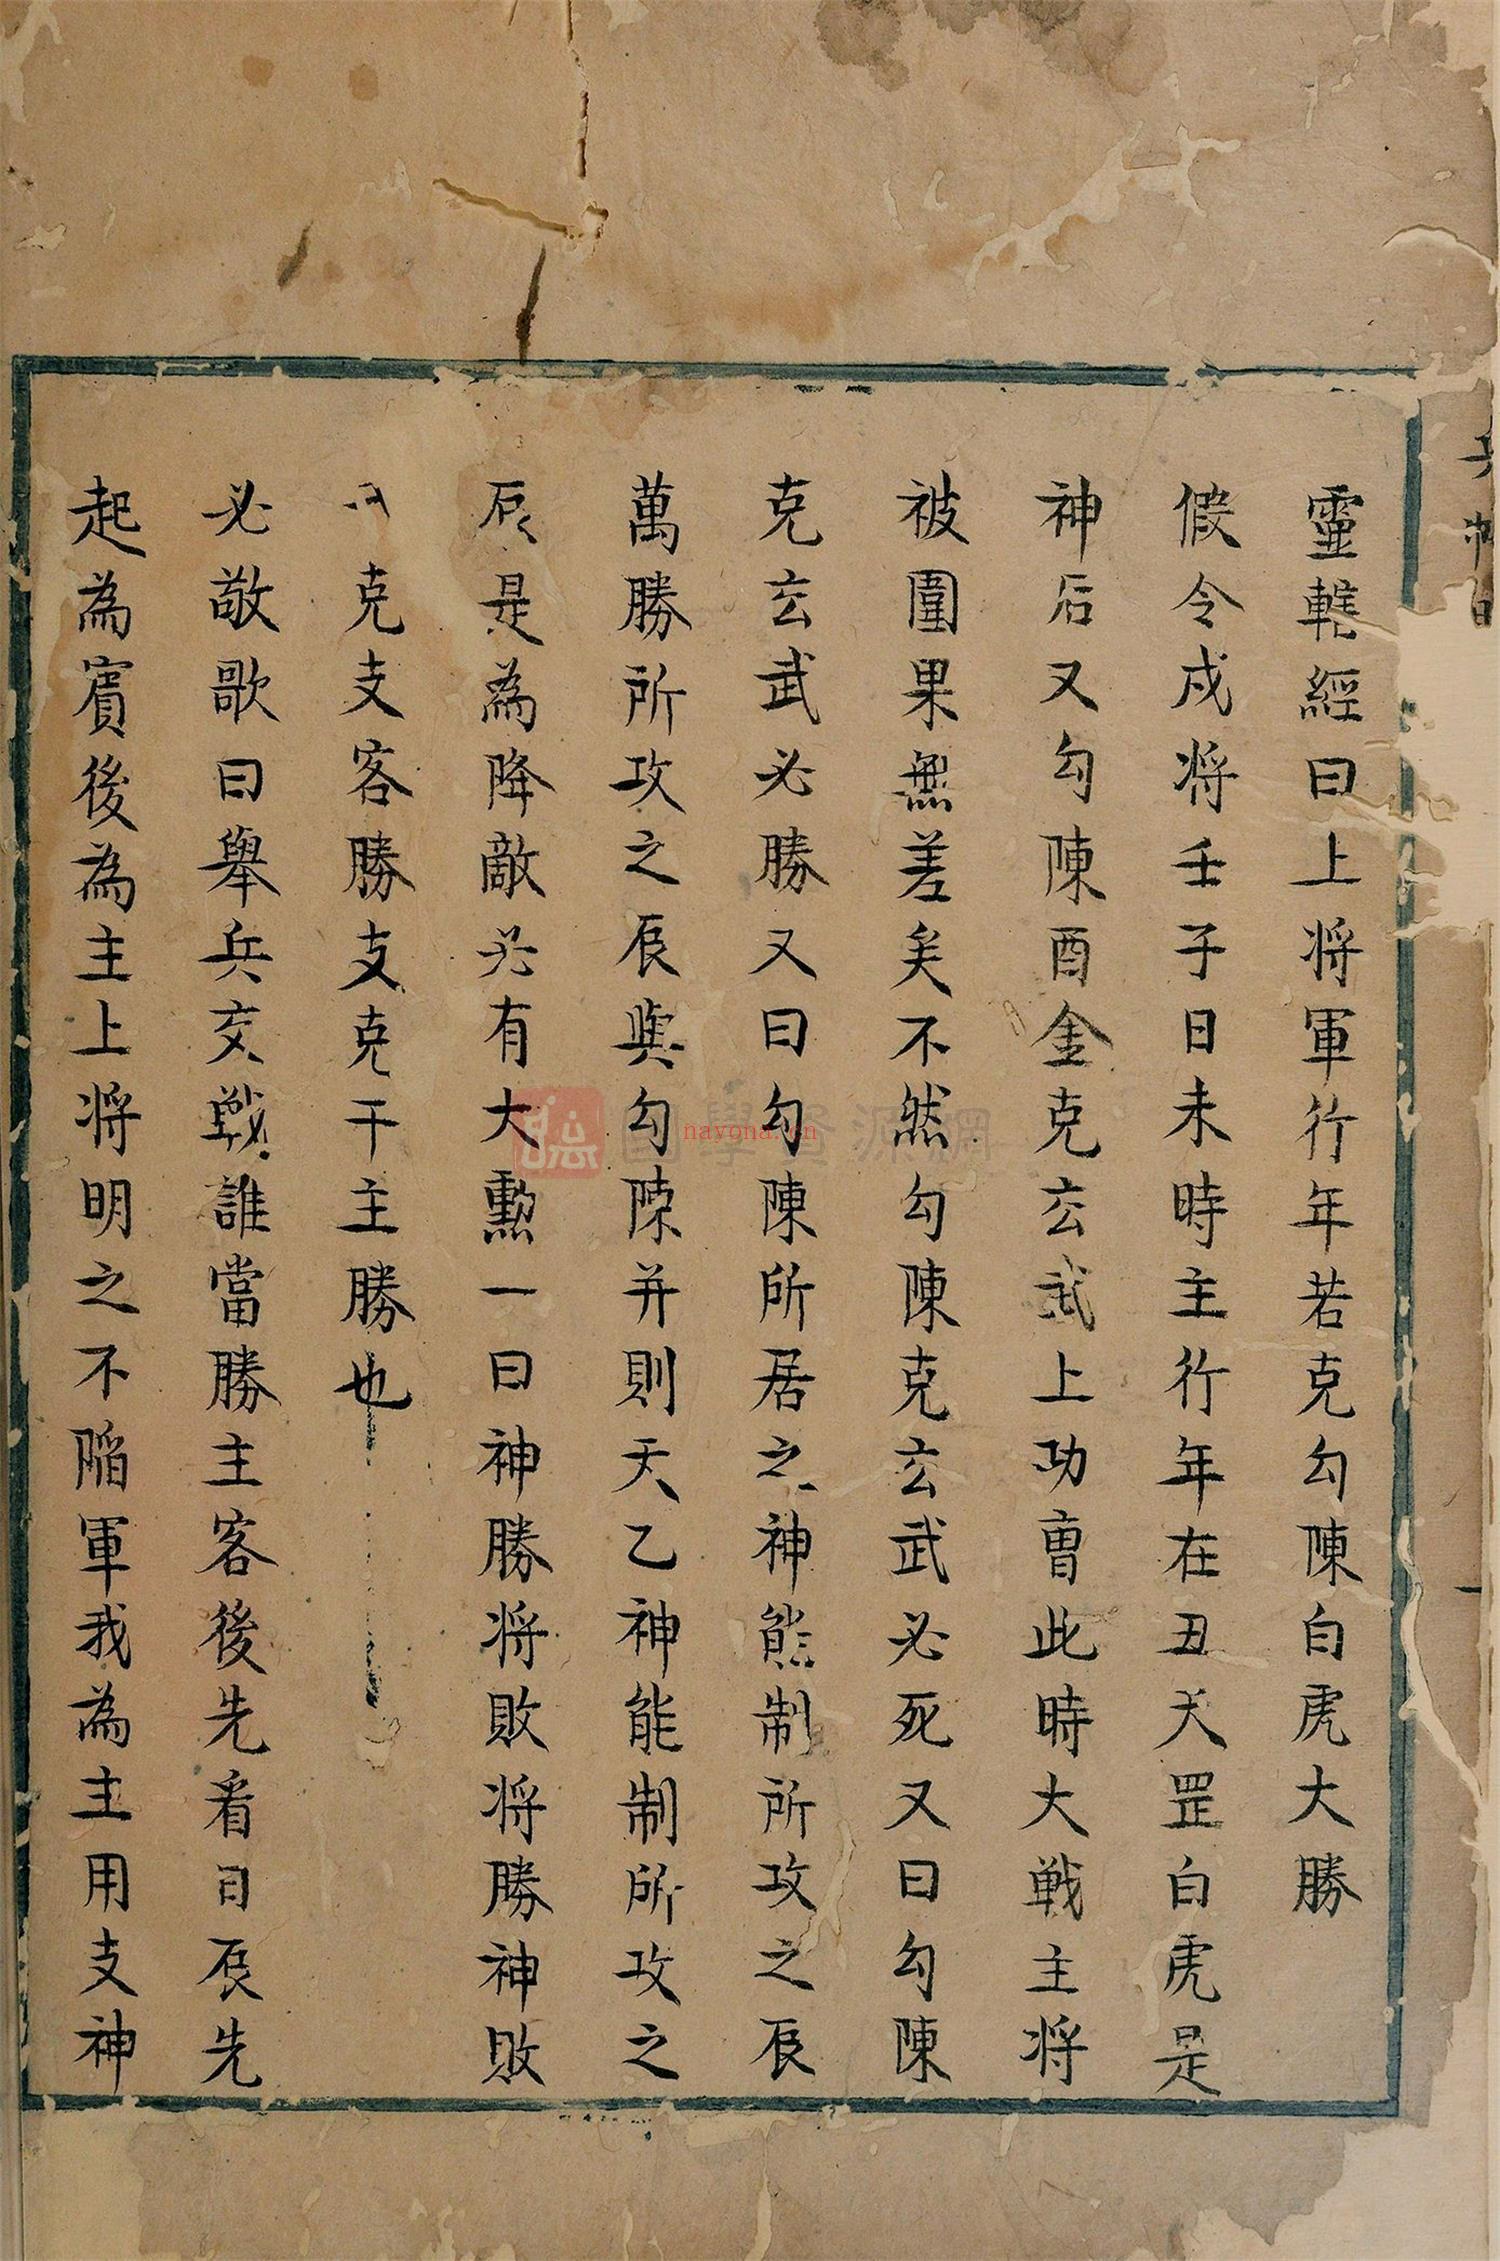 靈轄經曰上将軍行年若克勾陳白虎大勝
假令戍将壬子日未時主行年在丑天罡白虎是
神后又勾陳酉金克玄武上功曺此時大戦主将
被圍果無差矣不然勾陳克玄武必死又曰勾陳
克玄武必勝又曰勾陳所居之神能制所攻之辰
萬勝所攻之辰與勾陳并則天乙神能制所攻之
辰是為降敵必有大勲一曰神勝将敗将勝神敗
克支客勝支克干主勝也
必敬歌曰舉兵交戦誰當勝主客後先看日辰先
起為賓後為主上将明之不陷軍我為主用支神
國學資源網
nayona.cn